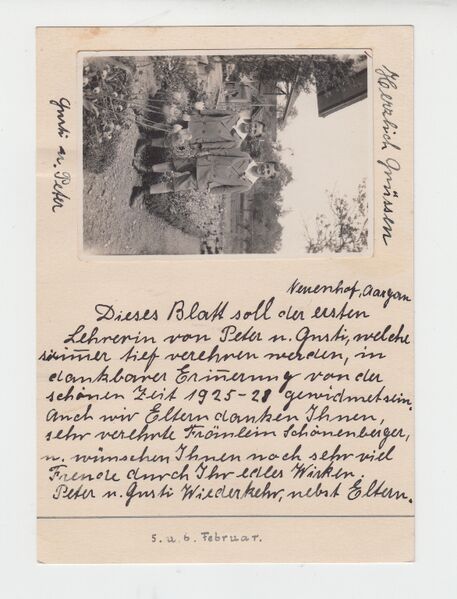 Herzlich Grüssen
Gusti u. Peter
Neuenhof, Aargau
Dieses Blatt soll der ersten
Lehrerin von Peter u. Gusti, welche
sie immer tief verehren werden, in
dankbarer Erinnerung von der
schönen Zeit 1925-28 gewidmet sein.
Auch wir Eltern danken Ihnen,
sehr verehrte Fräulein Schönenberger,
u. wünschen Ihnen noch sehr viel
Freude durch Ihr edles Wirken.
Peter u. Gusti Wiederkehr, nebst Eltern.
5. u. 6. Februar.